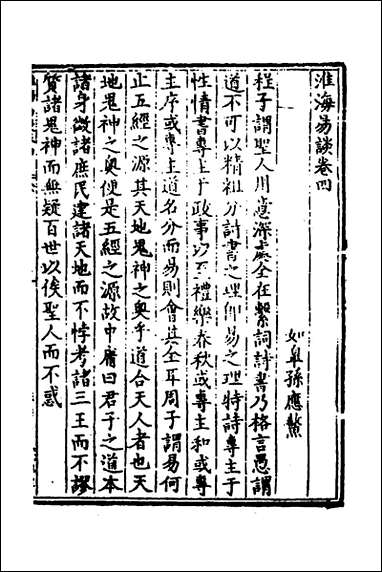 淮海易談卷四
如皐孫應鰲
程子謂聖人用意深處全在繫詞詩書乃格言愚謂
道不可以精粗分詩書之理即易之理特詩專主于
性情書專主于政事以至禮樂春秋或專主和或專
主序或專主道名分而易則會其全耳周子謂易何
止五經之源其天地鬼神之奥乎道合天人者也天
地鬼神之奥便是五經之源故中庸曰君子之道本
諸身徵諸庶民建諸天地而不悖考諸三王而不謬
質諸鬼神而無疑百世以俟聖人而不惑